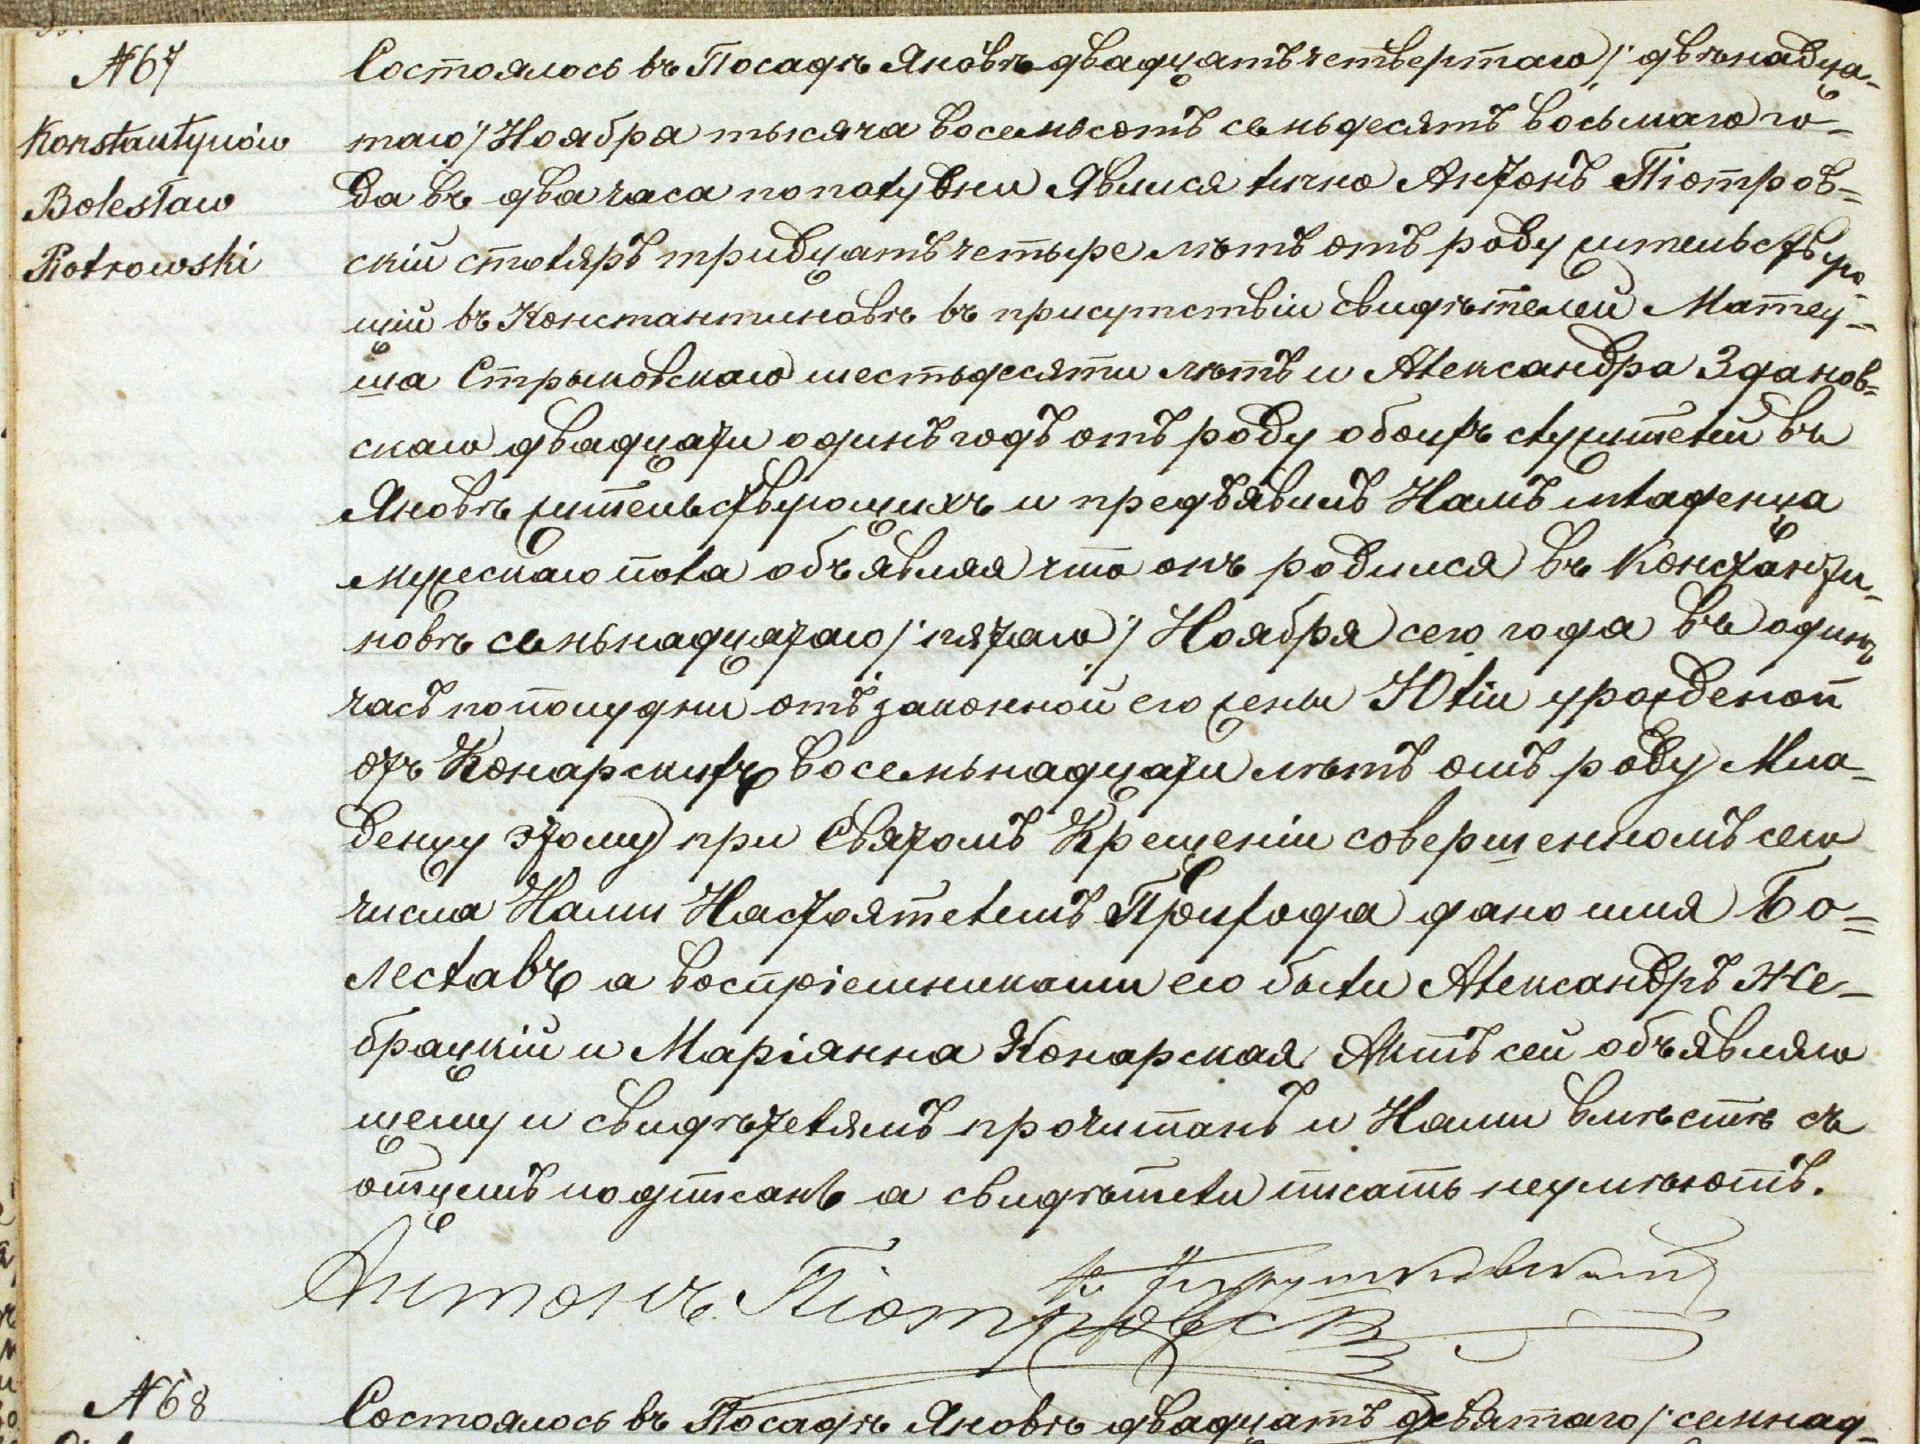 № 67
Konstantynów
Bolesław
Piotrowski
Состоялось въ Посадѣ Яновѣ двадцать четвертаго /: двѣнадца-
таго :/ Ноября тысяча восемьсотъ семьдесятъ восьмаго го-
да въ два часа пополудни Явился лично Антонъ Піотров-
скій столяръ тридцать четыре лѣтъ отъ роду жительствую-
щій въ Константиновѣ въ присутствіи свидѣтелей Матеу-
ша Стрыковскаго шестьдесяти лѣтъ и Александра Зданов-
скаго двадцати одинъ годъ отъ роду обоихъ служителей въ
Яновѣ жительствующихъ и предъявилъ Намъ младенца
мужескаго пола объявляя что онъ родился въ Константи-
новѣ семьнадцатаго /: пятаго :/ Ноября сего года въ одинъ
часъ пополудни отъ законной его жены Юліи урожденой
отъ Конарскихъ восемьнадцати лѣтъ отъ роду Мла-
денцу этому при Святомъ Крещеніи совершенномъ сего
числа Нами Настоятелемъ Прихода дано имя Бо-
леславъ а воспріемниками его были Александръ Же-
брацкій и Маріянна Конарская Актъ сей объявляю
щему и свидѣтелямъ прочитанъ и Нами вмѣстѣ съ
отцемъ подписанъ а свидѣтели писать неумѣютъ.
Антонъ Піотровскій
№ 68
Состоялось въ Посадѣ Яновѣ двадцать девятаго /: семнад-